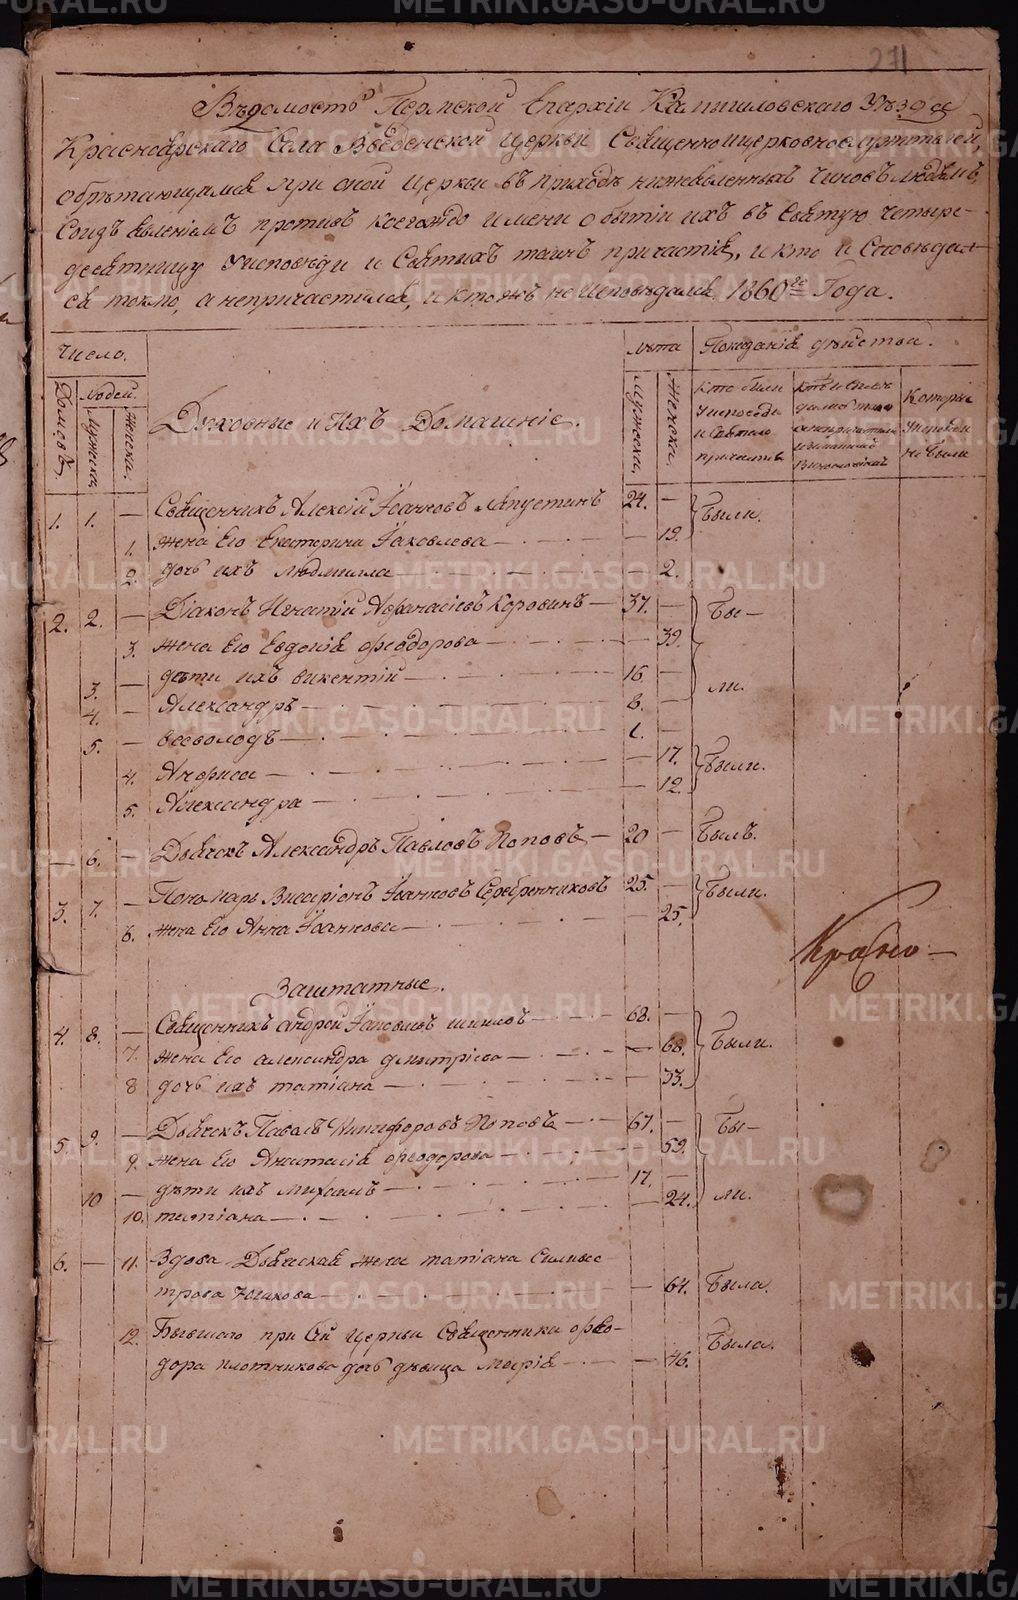 271
Вѣдомость Пермской Епархіи Камышловскаго Уѣзда
Красноярскаго Села Введенской Церкви Священноицерковнослужителей,
обрѣтающимся при оной Церкви въ приходѣ нижеявленныхъ чиновъ людемъ,
Соизъявленіемъ противъ коегождо имени о бытіи ихъ въ Святую четыре-
десятницу Уисповѣди и Святыхъ таинъ причастія, и кто и Сповѣдал
ся токмо, а непричастился, и ктожъ не Исповѣдался, 1860го Года.
Число.
Домовъ.
Людей.
Мужеска.
Женска.
Духовные и Ихъ Домашніе.
Лѣта
Мужеска.
Женска.
Показанія дѣйствій.
Кто были
Уисповѣди
и Святаго
причастія
Которые
не были
1. 1. — Священникъ Алексій Іоанновъ Лапустинъ 24. — Были.
1. жена Его Екатерина Іаковлева — 19.
2. дочь ихъ Людмилла — 2.
2. 2. — Діаконъ Игнатій Аѳанасіевъ Коровинъ — 37. — Бы—
3. жена Его Евдокія Ѳеодорова — 39.
3. — дѣти ихъ викентій — 16. — ли.
4. — Александръ — 8. —
5. — всеволодъ — 1. —
4. Анфиса — 17. Были.
5. Александра — 12.
— 6. — Дьячекъ Александръ Павловъ Поповъ — 20 — Былъ.
3. 7. — Пономарь Висаріонъ Іоанновъ Серебренниковъ 25. — Были.
6. жена Его Анна Іоаннова — 25.
Заштатные.
4. 8. — Священникъ андрей Іаковлевъ шишовъ — 68. — Были.
7. жена Его александра дмитріева — 68.
8 дочь ихъ татіана — 33.
5. 9. — Дьячекъ Павелъ Никифоровъ Поповъ — 67. — Бы—
9. жена Его Анастасія Ѳеодорова — 59.
10 — дѣти ихъ михаилъ — 17. ли.
10. татіана — 24.
6. — 11. Вдова Дьяческая жена татіана Сильвес
трова — 64. Была.
12. Бывшаго при Сей Церкви Священника Ѳео-
дора плотникова дочь дѣвица Марія — 46. Была.
METRIKI.GASO-URAL.RU